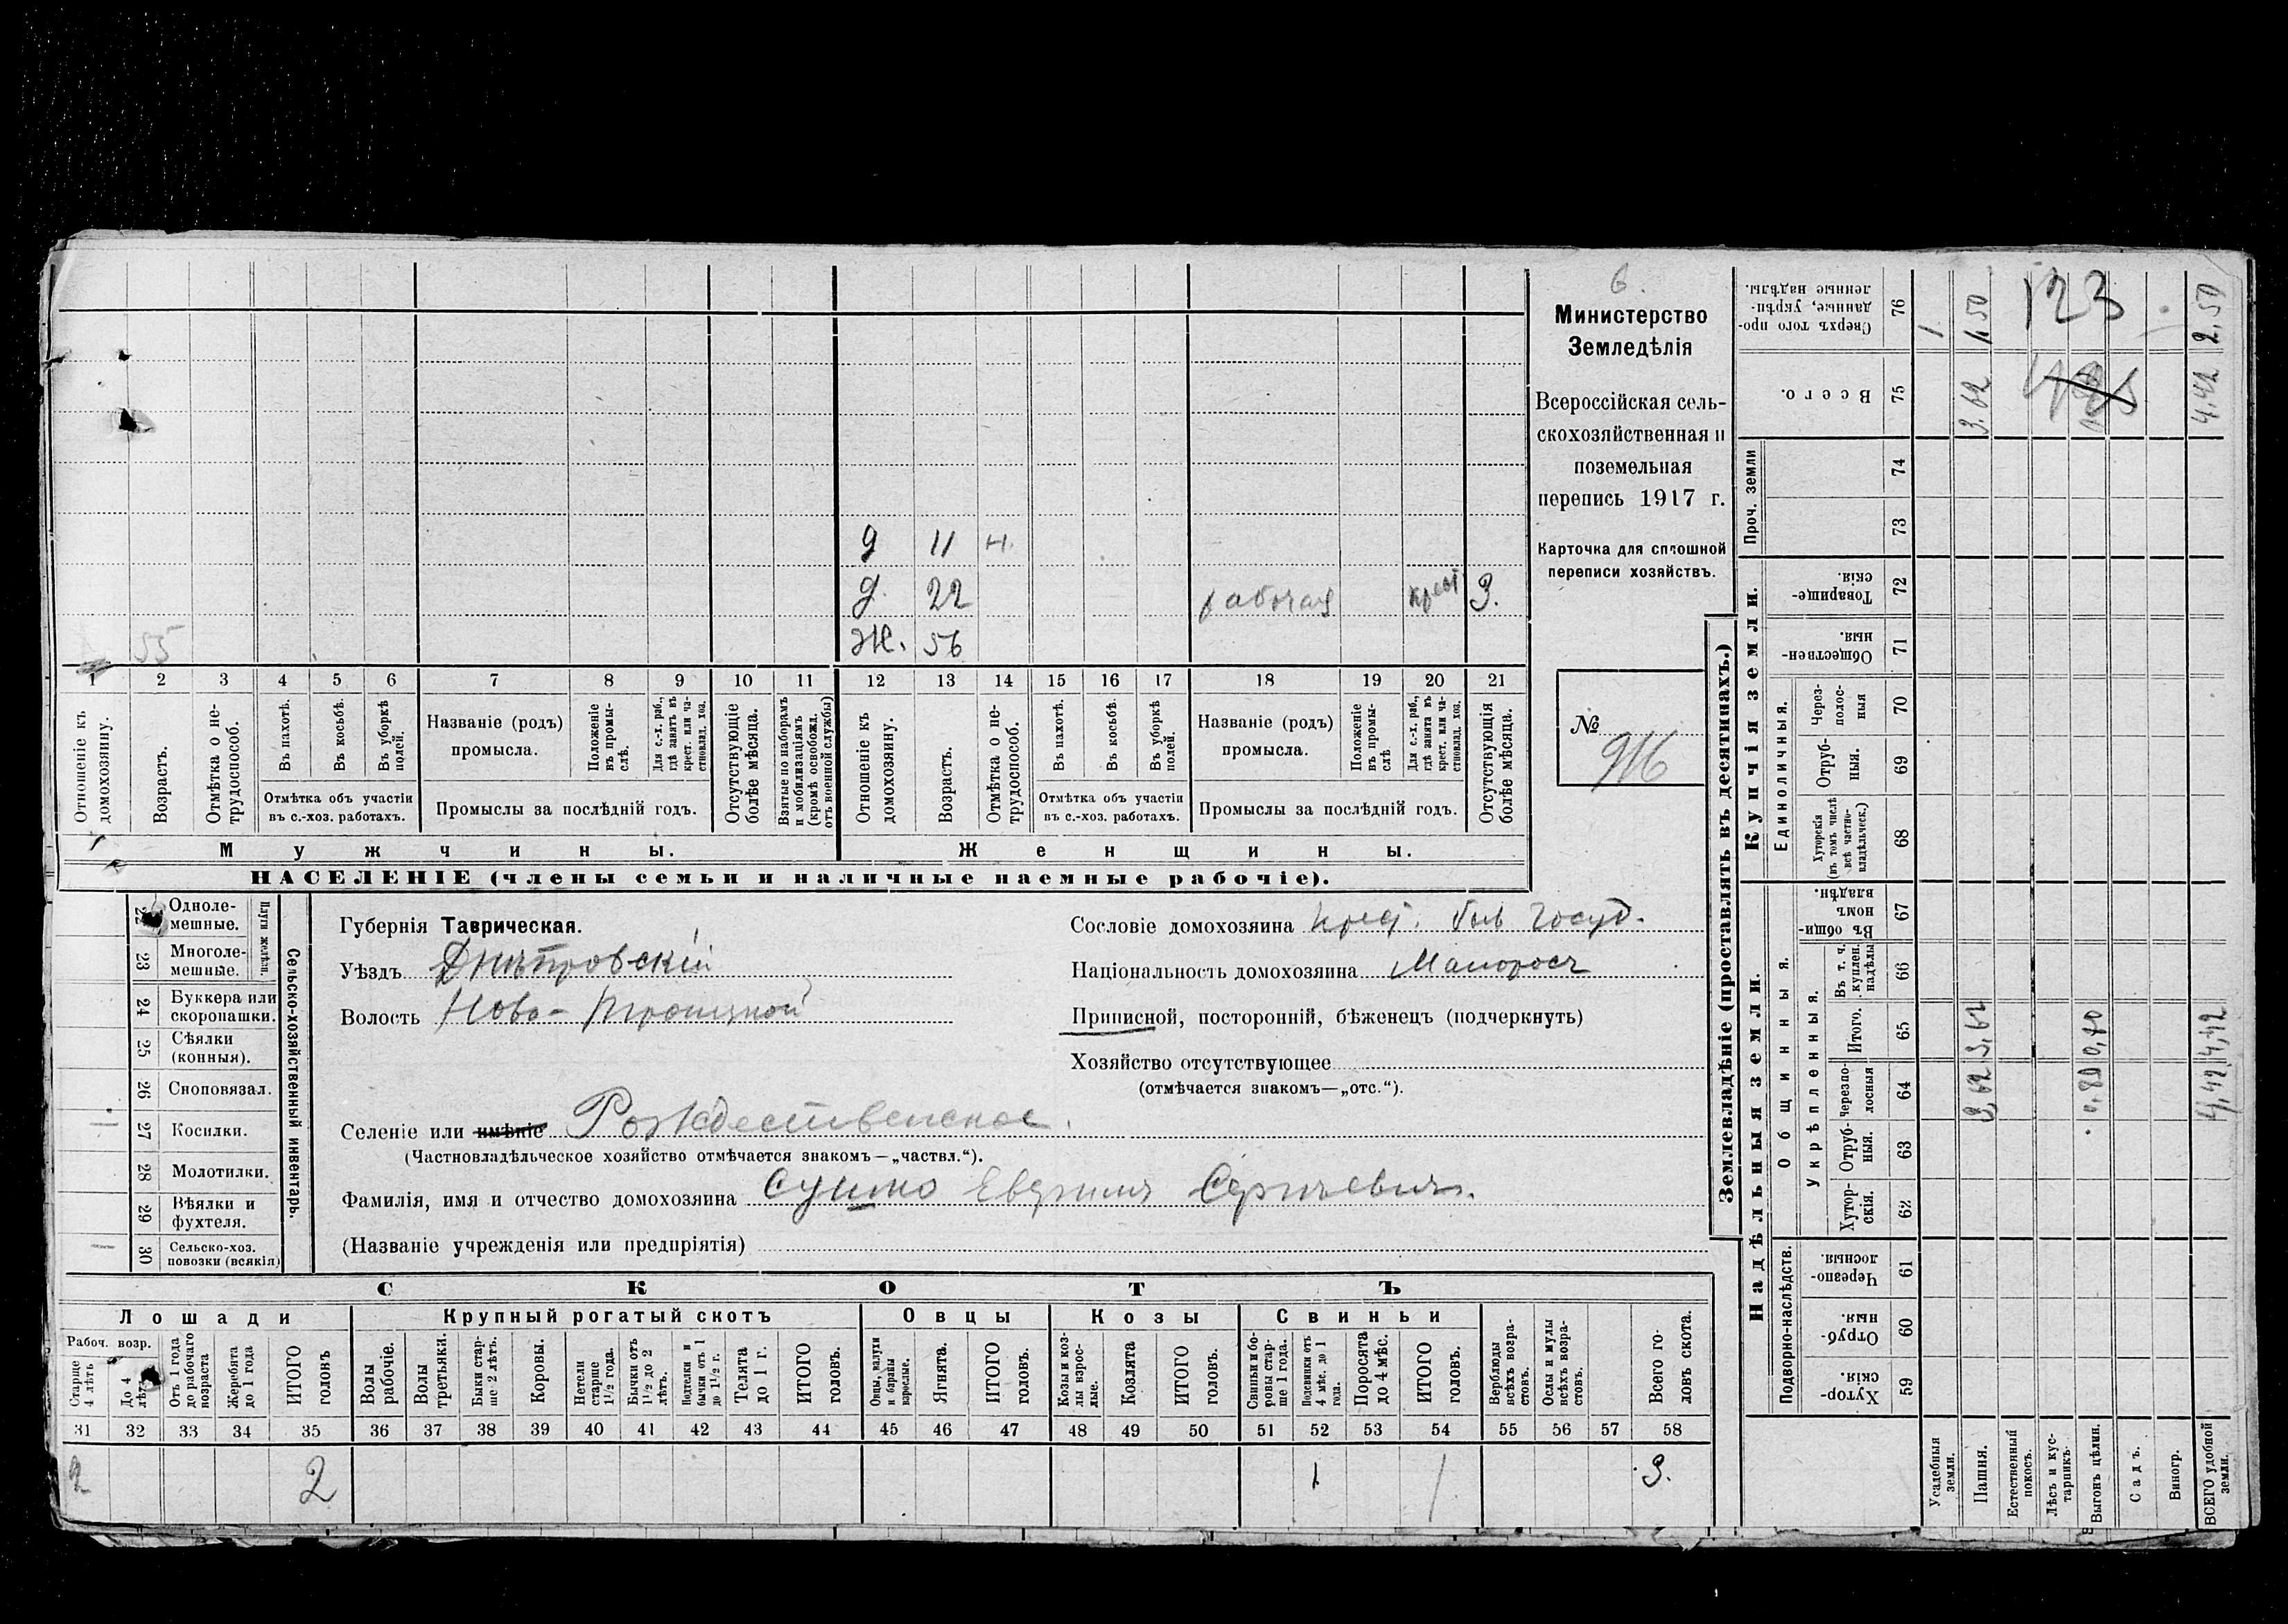 6.
Министерство
Земледѣлія
Всероссійская сель-
скохозяйственная и
поземельная
перепись 1917 г.
Карточка для сплошной
переписи хозяйствъ.
№
д 11 н.
д. 22 рабочая крест 3.
55 Ж. 56
1 2 3 4 5 6 7 8 9 10 11 12 13 14 15 16 17 18 19 20 21
Отношеніе къ домохозяину.
Возрастъ.
Отмѣтка о не-трудоспособ.
Въ пахотѣ.
Въ косьбѣ.
Въ уборкѣ полей.
Отмѣтка объ участіи
въ с.-хоз. работахъ.
Названіе (родъ)
промысла.
Положеніе въ промы-слѣ.
Для с.-х. раб., гдѣ занятъ въ крест. или ча-стновлад. хоз.
Промыслы за послѣдній годъ.
Отсутствующіе болѣе мѣсяца.
Взятые по наборамъ и мобилизаціямъ (кромѣ освобожд. отъ военной службы)
Отношеніе къ домохозяину.
Возрастъ.
Отмѣтка о не-трудоспособ.
Въ пахотѣ.
Въ косьбѣ.
Въ уборкѣ полей.
Отмѣтка объ участіи
въ с.-хоз. работахъ.
Названіе (родъ)
промысла.
Положеніе въ промы-слѣ
Для с.-х. раб., гдѣ занята въ крест. или ча-стновлад. хоз.
Промыслы за послѣдній годъ.
Отсутствующія болѣе мѣсяца.
Мужчины. Женщины.
НАСЕЛЕНІЕ (члены семьи и наличные наемные рабочіе).
Сельско-хозяйственный инвентарь.
Плуги желѣзн.
22 Однолемешные.
23 Многоле-мешные.
24 Буккера или скоропашки.
25 Сѣялки (конныя).
26 Сноповязал.
27 Косилки.
28 Молотилки.
29 Вѣялки и фухтеля.
30 Сельско-хоз. повозки (всякія)
Губернія Таврическая.
Уѣздъ Днѣпровскій
Волость Ново-Троицкой
Селеніе или имѣніе Рождественское.
(Частновладѣльческое хозяйство отмѣчается знакомъ—„частвл.“).
Фамилія, имя и отчество домохозяина
(Названіе учрежденія или предпріятія)
Сословіе домохозяина крест. быв госуд.
Національность домохозяина Малоросъ
Приписной, посторонній, бѣженецъ (подчеркнуть)
Хозяйство отсутствующее
(отмѣчается знакомъ—„отс.“).
СКОТЪ
Лошади Крупный рогатый скотъ Овцы Козы Свиньи
Рабоч. возр.
Старше 4 лѣтъ
До 4 лѣтъ
Отъ 1 года до рабочаго возраста
Жеребята до 1 года
ИТОГО головъ
Волы рабочіе.
Волы третьяки.
Быки стар-ше 2 лѣтъ.
Коровы.
Нетели старше 1½ года.
Бычки отъ 1½ до 2 лѣтъ.
Подтелки и бычки отъ 1 до 1½ г.
Телята до 1 г.
ИТОГО головъ.
Овцы, валухи и бараны взрослые.
Ягнята.
ИТОГО головъ.
Козы и коз-лы взрос-лые.
Козлята
ИТОГО головъ.
Свиньи и бо-ровы стар-ше 1 года.
Подсвинки отъ 4 мѣс. до 1 года.
Поросята до 4 мѣс.
ИТОГО головъ.
Верблюды всѣхъ возра-стовъ.
Ослы и мулы всѣхъ возра-стовъ.
Всего го-ловъ скота.
31 32 33 34 35 36 37 38 39 40 41 42 43 44 45 46 47 48 49 50 51 52 53 54 55 56 57 58
2 2 1 1 3.
Землевладѣніе (проставлять въ десятинахъ.)
Надѣльныя земли. Купчія земли.
Подворно-наслѣдств.
Общинныя.
Укрѣпленныя.
Единоличныя.
Проч. земли
Хутор-скія. 59
Отруб-ныя. 60
Черезпо-лосныя. 61
Хутор-скія. 62
Отруб-ныя. 63
Черезпо-лосныя 64
Итого. 65
Въ т. ч. куплен. надѣлы 66
Въ общин-номъ владѣн. 67
Хуторскія (въ томъ числѣ всѣ частно-владѣльческ.) 68
Отруб-ныя. 69
Через-полос-ныя 70
Обществен-ныя. 71
Товарище-скія. 72
73
74
Всего. 75
Сверхъ того про-данные, укрѣп-ленные надѣлы. 76
Усадебныя земли. 1
Пашня. 3,62 3,62 3.62 1,50
Естественный покосъ.
Лѣсъ и кус-тарникъ.
Выгонъ цѣлин. 0,80 0,80
Садъ.
Виногр.
ВСЕГО удобной земли. 4,42 4,42 4,42 2,50
123